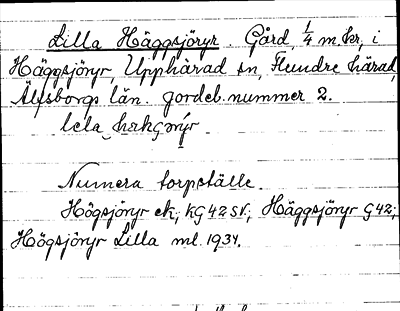 Lilla Häggsjöryr. Gård, 1/4 m kr, i
Häggsjöryr, Upphärad sn, Flundre härad,
Älfsborgs län. Jordeb. nummer 2.
lela
Numera torpställe.
Högsjöryr ek; KG 42 SV.; Häggsjöryr G 42;
Högsjöryr Lilla ml. 1934.